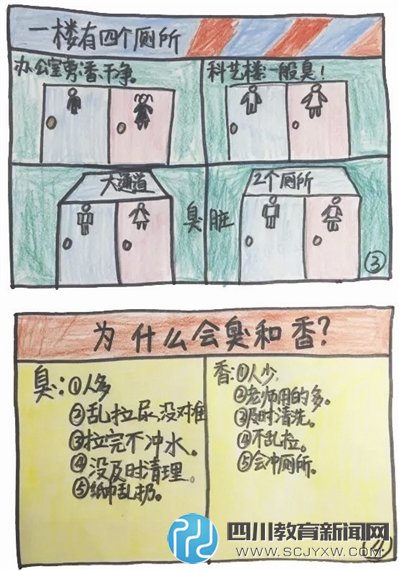 一楼有四个厕所
办公室旁:香、干净。
科艺楼:一般臭!
大通道
2个厕所
臭脏
③
为什么会臭和香?
臭:①人多
②乱拉尿、没对准
③拉完不冲水。
④没及时清理。
⑤纸巾乱扔。
香:①人少
②老师用的多。
③及时清洗。
④不乱拉。
⑤会冲厕所。
四川教育新闻网
WWW.SCJYXW.COM